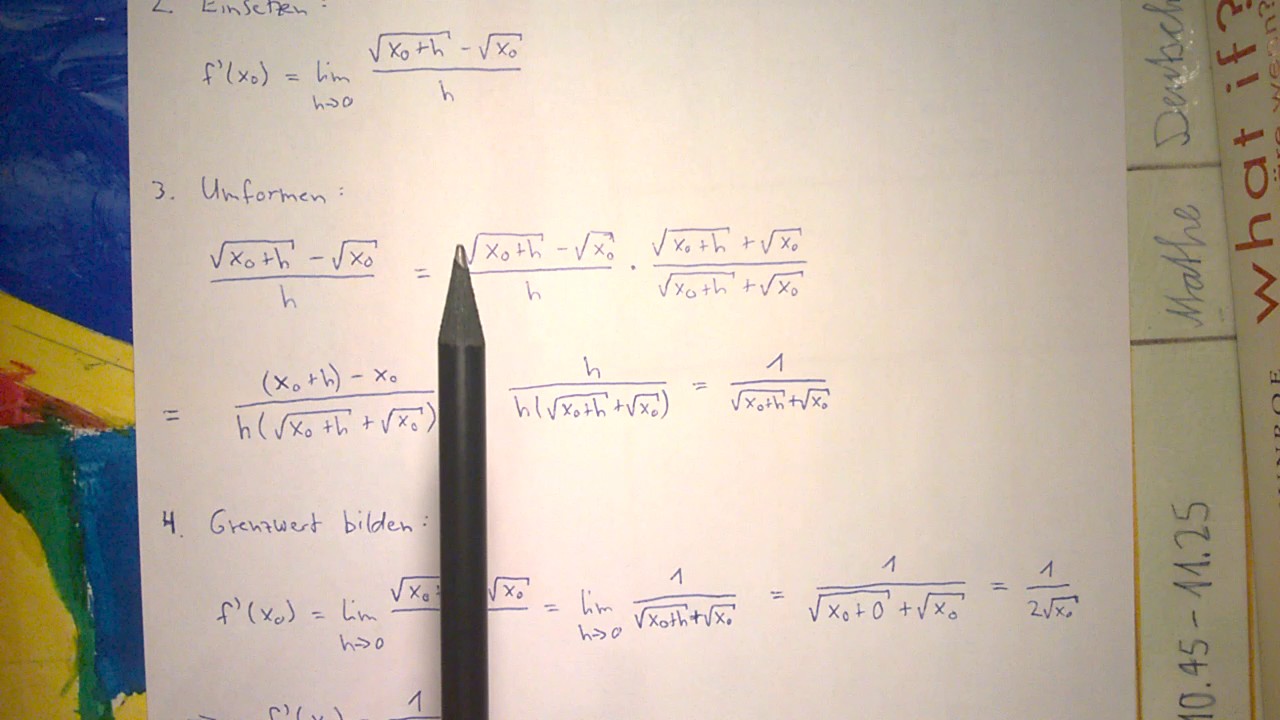 2. Einsetzen:
f'(x₀) = lim h→0 (√(x₀+h) - √x₀) / h
3. Umformen:
(√(x₀+h) - √x₀) / h = (√(x₀+h) - √x₀) / h · (√(x₀+h) + √x₀) / (√(x₀+h) + √x₀)
= ((x₀+h) - x₀) / (h(√(x₀+h) + √x₀)) h / (h(√(x₀+h) + √x₀)) = 1 / (√(x₀+h) + √x₀)
4. Grenzwert bilden:
f'(x₀) = lim h→0 √x₀ √x₀ = lim h→0 1 / (√(x₀+h) + √x₀) = 1 / (√(x₀+0) + √x₀) = 1 / (2√x₀)
Deutsch
Mathe
10.45 - 11.25
what if?